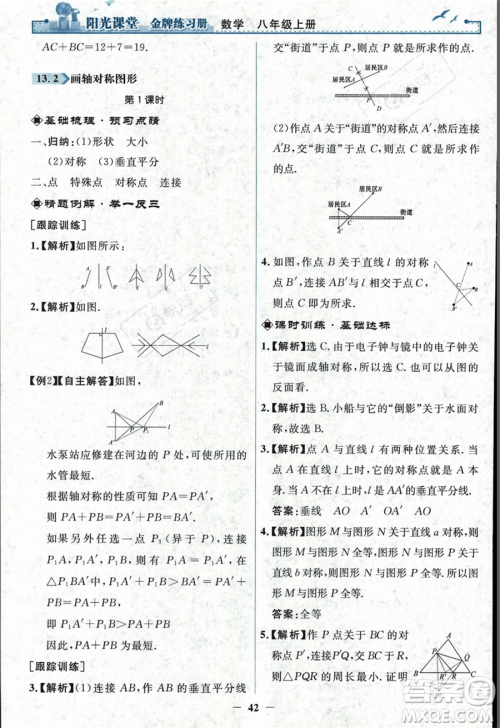 阳光课堂 金牌练习册 数学 八年级上册
AC+BC=12+7=19.
13.2 画轴对称图形
第1课时
基础梳理·预习点睛
一、归纳:(1)形状 大小
(2)对称 (3)垂直平分
二、点 特殊点 对称点 连接
精题例解·举一反三
[跟踪训练]
1.【解析】如图所示:
2.【解析】如图.
【例2】【自主解答】
A B P P₁ A′
水泵站应修建在河边的P处,所用的
水管最短.
根据轴对称的性质可知 PA=PA′,
所以PA+PB=PA′+PB=A′B.
如果另外任选一点P₁(异于P),连接
P₁A,P₁B,P₁A′,则P₁A=P₁A′,在
△P₁A′B中,P₁A′+P₁B>A′B,
即P₁A+P₁B>PA+PB.
因此,PA+PB最短.
[跟踪训练]
3.【解析】(1)连接AB,作AB的垂直平分线
交“街道”于点P,则点P即为所求.
居民区B
居民区A C
街道
P D
(2)作点A关于“街道”的对称点A′,然后连接
A′B,交“街道”于点P,则点P即为所求.
居民区B
居民区A
P 街道
A′
4.如图,作点A关于直线l的对
称点A′,连接BA′与直线l交
于P,则点P即为所求.
课时训练·基础达标
1.【解析】选C.由于电子钟与镜中的电子钟关
于镜面成轴对称,故选C.也可以从纸的
反面看.
2.【解析】选B.小船与它的“倒影”关于水面对
称,故选B.
3.【解析】点A与点A′关于直线MN对称,点O
在MN上,所以它的对称点就是点O本身.
答案:垂线 AO OA′ AO OA′
4.【解析】图形M与图形N关于直线a对称,则
图形M与图形N全等,图形N与图形F关于
直线b对称,则图形N与图形F全等,所以图
形M与图形F全等.
答案:全等
5.【解析】作点P关于BC的对称
点P′,连接P′Q,交BC于R,
则△PQR的周长最小,如图.
A P Q B R C P′
42